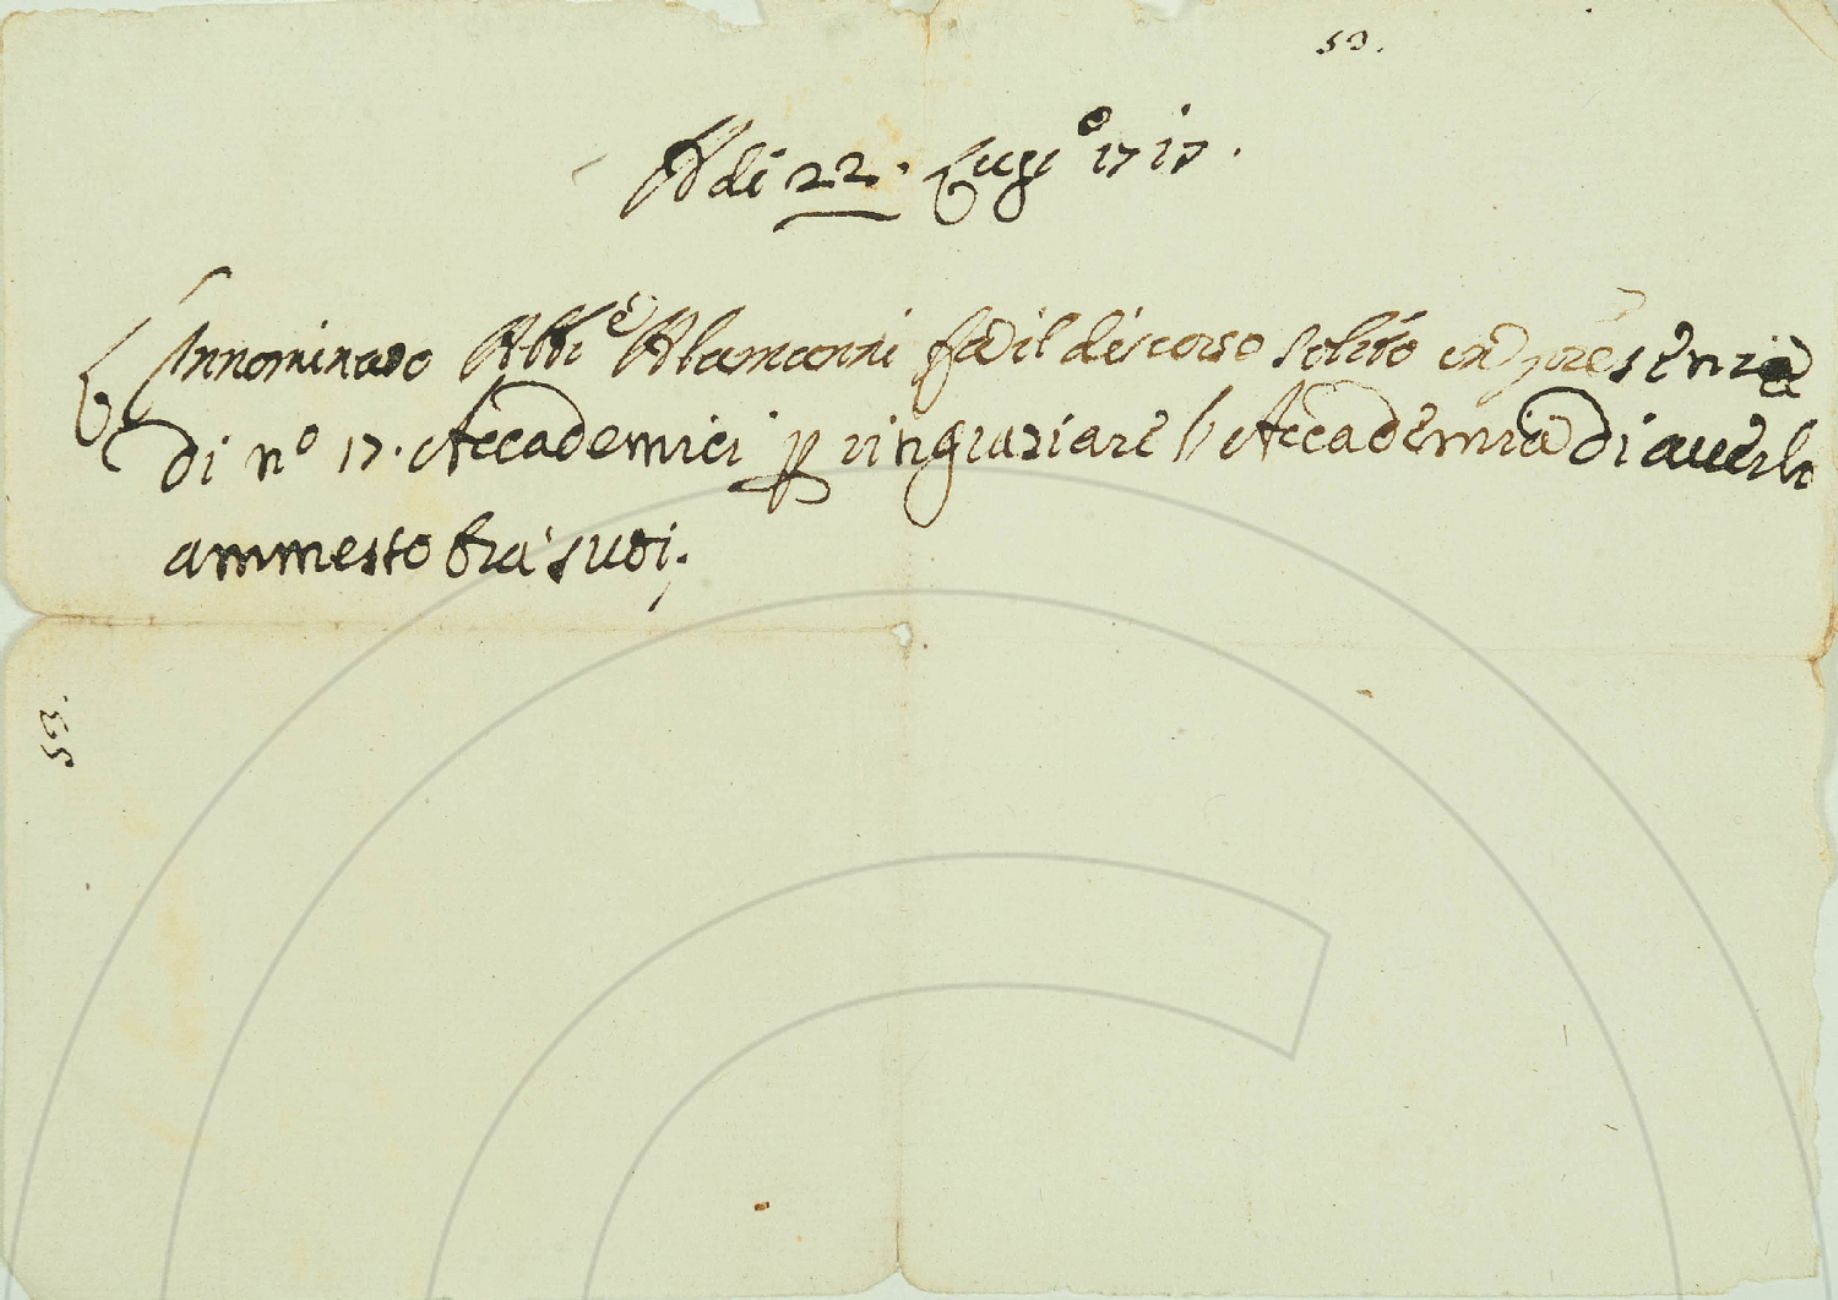 53.
Adi 22. Lugl.º 1717.
L'Innominato Abb.e Alamanni fà il discorso solito in presenza
di nº 17. Accademici p ringraziare l'Accademia di averlo
ammesso tra' suoi.
53.